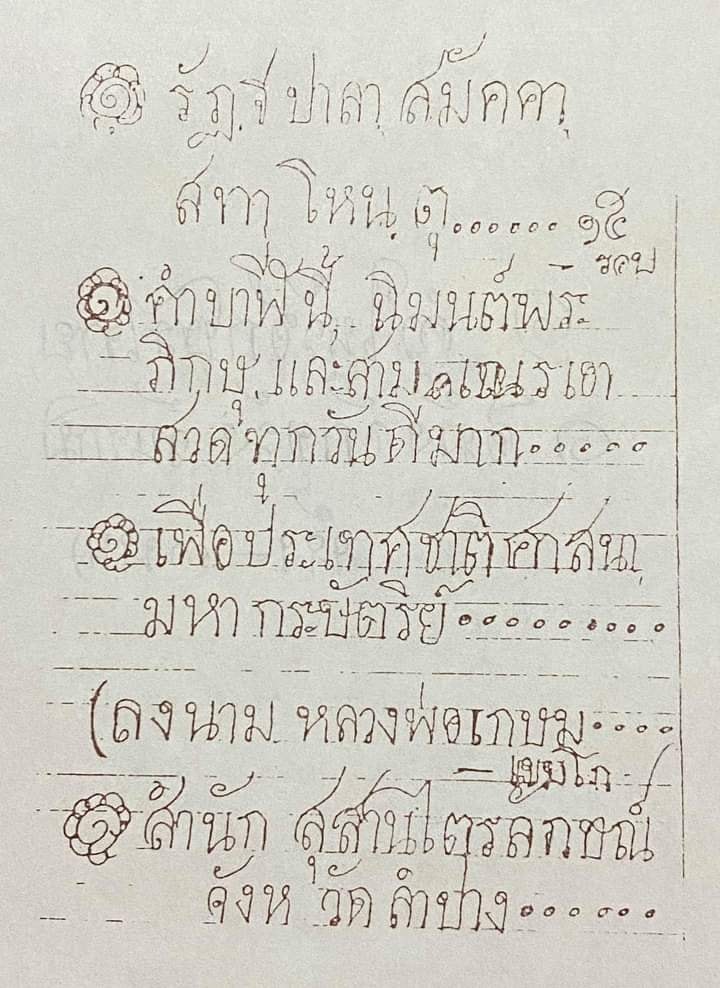 ๑ รัฏฺจิ ปาลาฺ สฺมัคคาฺ
สทาฺ โหนฺตฺุ...... ๑๕
รอบ
๑ คำบาฬีนี้, นิมนต์พระ
ภิกษุ. และสามเณร เอา
สวดทุกวันดีมาก.....
๑ เพื่อประเทศชาติศาสนา
มหา กระษัตริย์.........
(ลงนาม หลวงพ่อเกษม....
– เขมโก
๑ สำนัก สุสานไตรลักษณ์
จังหวัด ลำปาง......